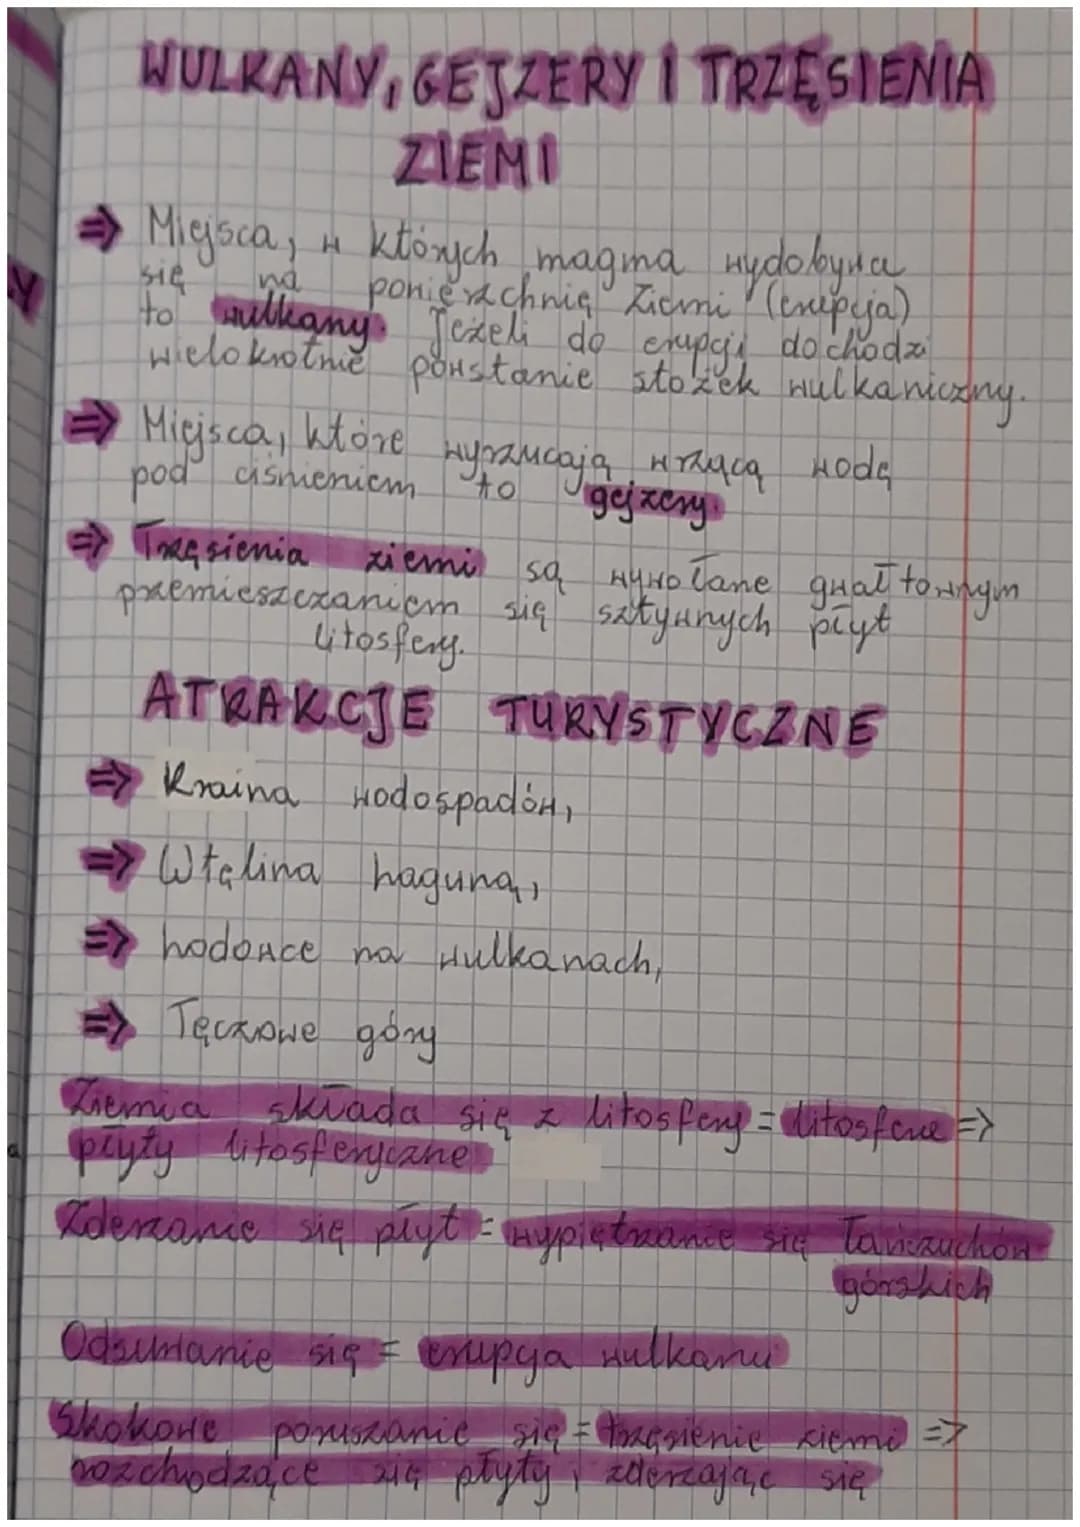 WULKANY, GEJZERY I TRZĘSIENIA
ZIEMI
⇒ Miejsca, w których magma wydobywa
się na powierzchnię Ziemi (erupcja)
to wulkany. Jeżeli do erupcji dochodzi
wielokrotnie powstanie stożek wulkaniczny.
⇒ Miejsca, które wyrzucają wrzącą wodę
pod ciśnieniem to gejzery.
⇒ Trzęsienia ziemi są wywołane gwałtownym
przemieszczaniem się sztywnych płyt
litosfery.
ATRAKCJE TURYSTYCZNE
⇒ Kraina wodospadów,
⇒ Błękitna laguna,
⇒ lodowce na wulkanach,
⇒ Tęczowe góry
Ziemia składa się z litosfery = litosfera ⇒
płyty litosferyczne
Zderzanie się płyt = wypiętrzanie się łańcuchów
górskich
Odsuwanie się = erupcja wulkanu
Skokowe poruszanie się = trzęsienie ziemi =>
rozchodzące się płyty, zderzając się